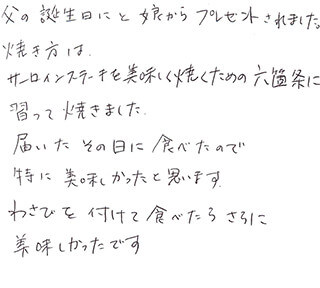 父の誕生日にと娘からプレゼントされました。
焼き方は、
サーロインステーキを美味しく焼くための六箇条に
習って焼きました。
届いたその日に食べたので
特に美味しかったと思います。
わさびを付けて食べたらさらに
美味しかったです